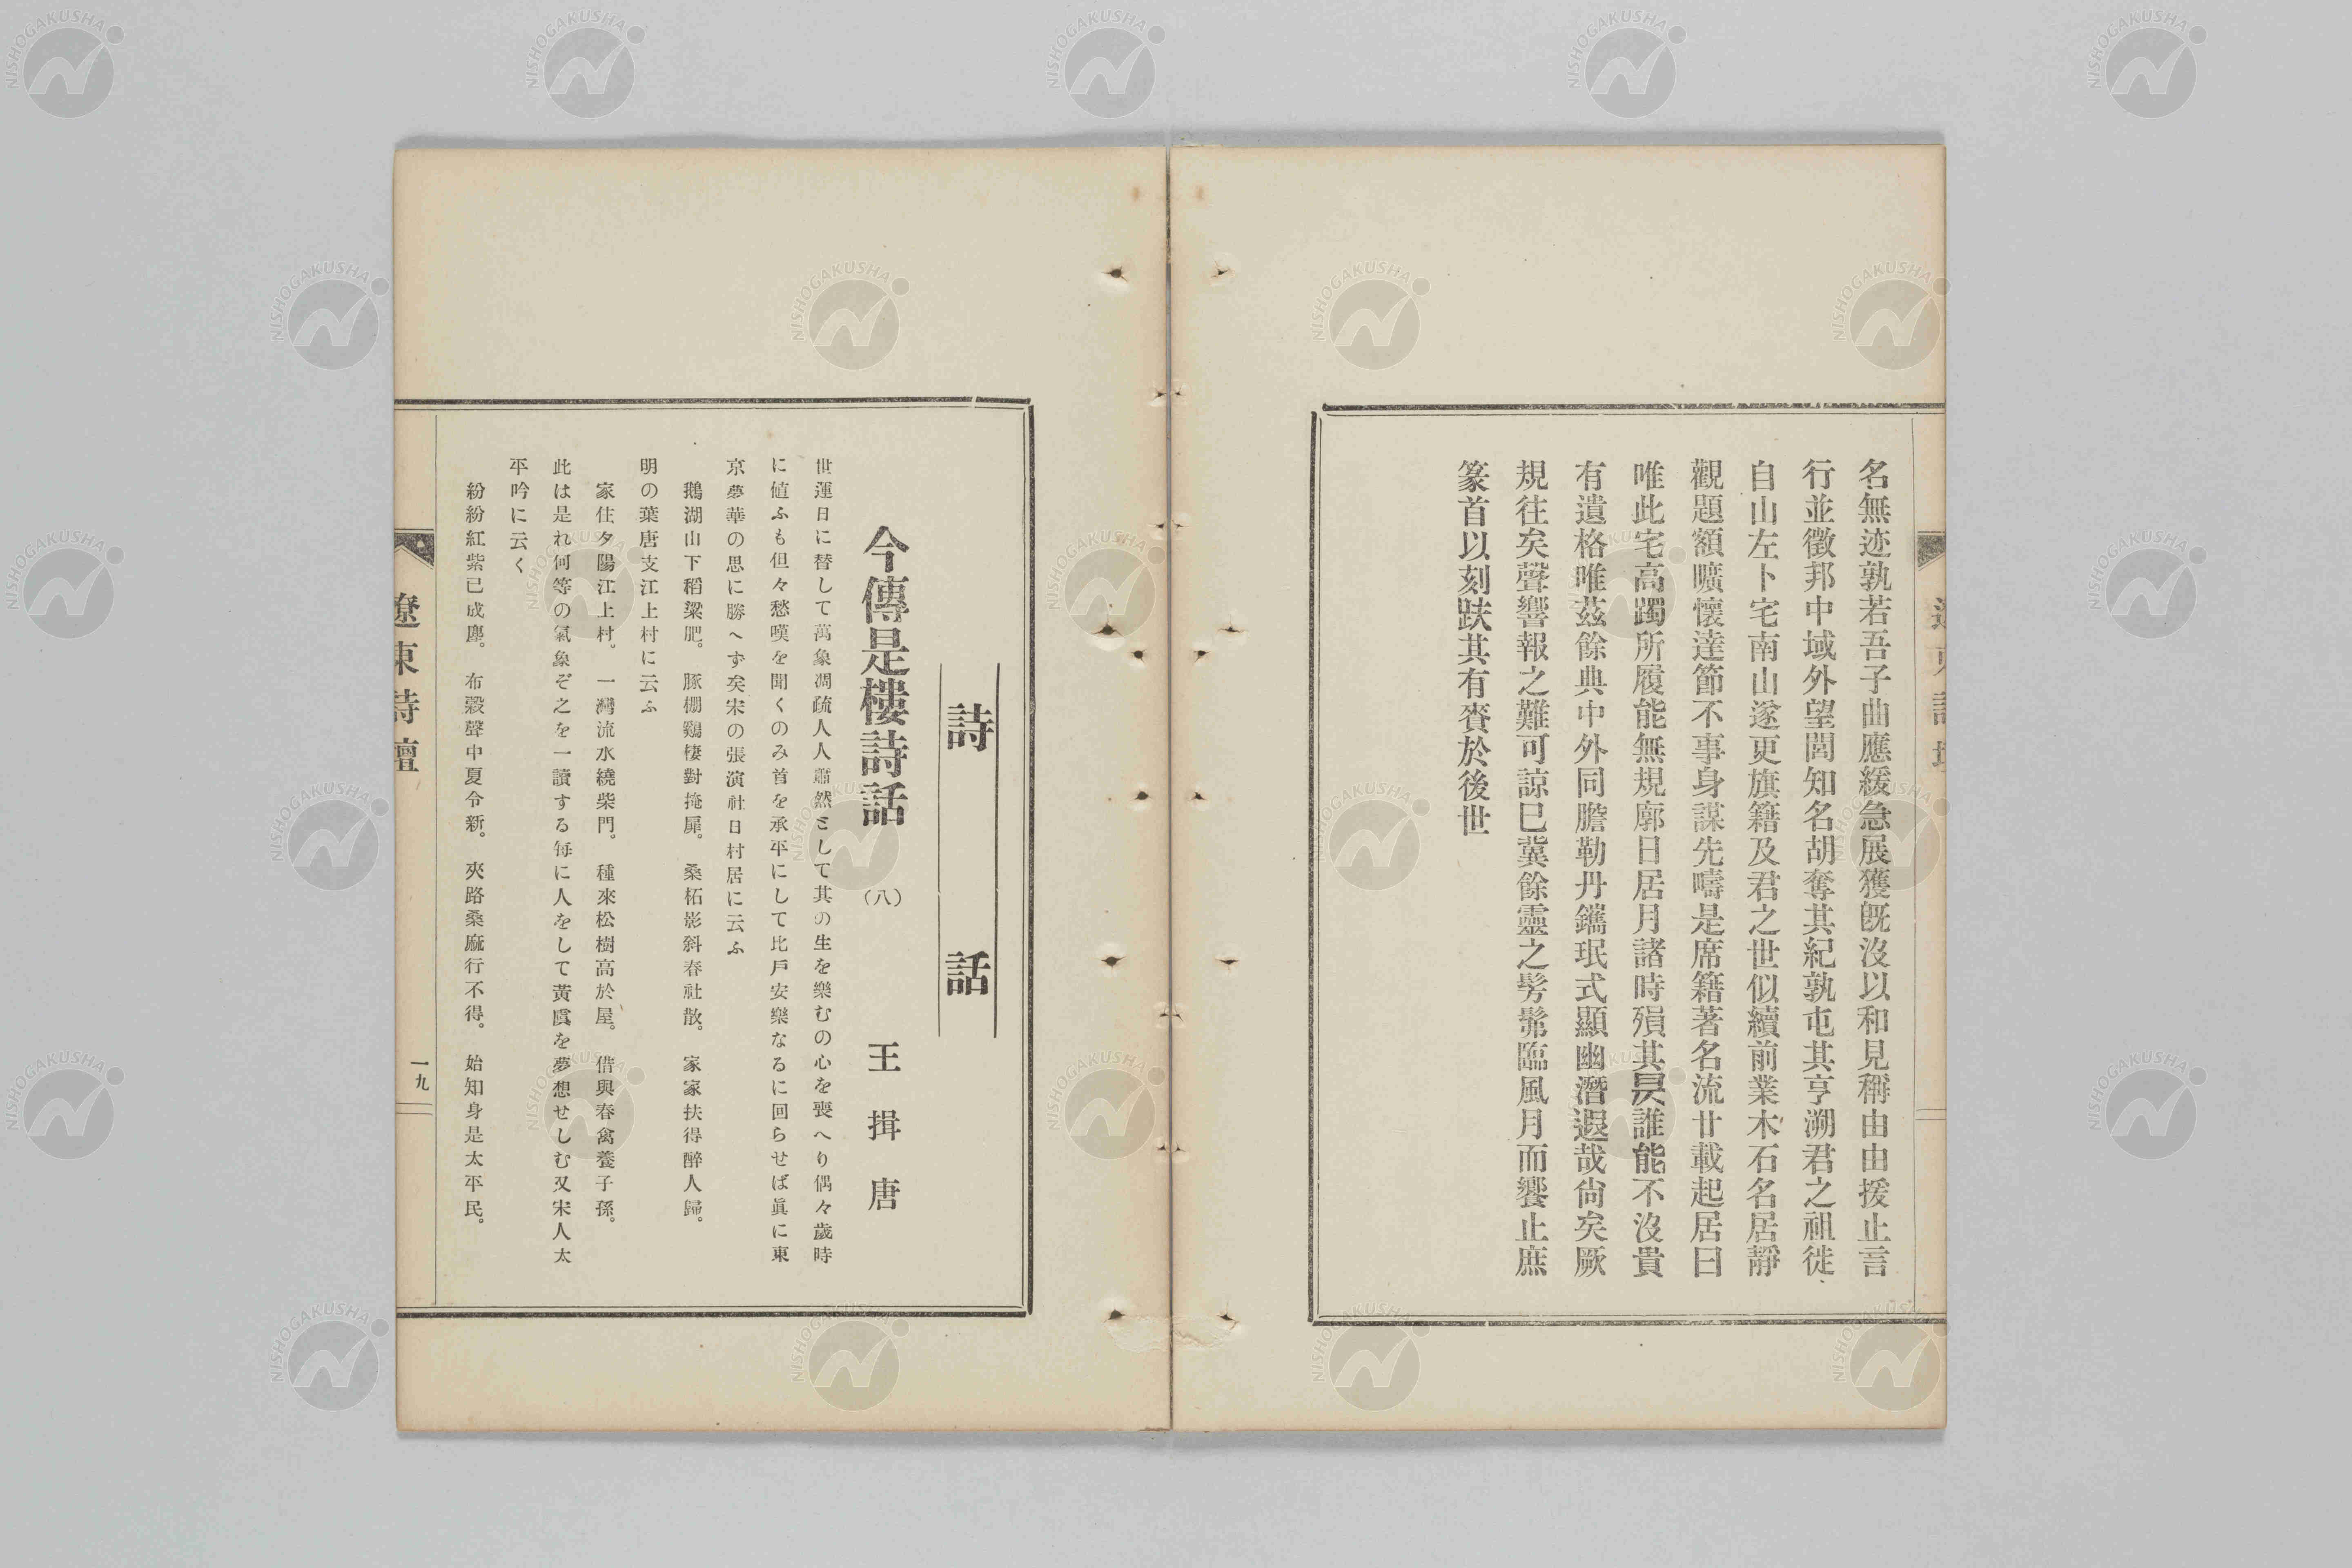 名無迹孰若吾子曲應緩急展獲既沒以和見稱由由援止言
行並徵邦中域外望閭知名胡奪其紀孰屯其亨溯君之祖徙
自山左卜宅南山遂更旗籍及君之世似續前業木石名居靜
觀題額曠懷達節不事身謀先疇是席籍著名流廿載起居曰
唯此宅高躅所履能無規廓日居月諸時殞其昃誰能不沒貴
有遺格唯茲餘典中外同膽勒丹鐫珉式顯幽潛遐哉尙矣厥
規往矣聲響報之難可諒已冀餘靈之髣髴臨風月而饗止庶
篆首以刻趺其有賚於後世
詩話
今傳是樓詩話 (八) 王揖唐
世運日に替して萬象凋疏人人蕭然として其の生を樂むの心を喪へり偶々歲時
に値ふも但々愁嘆を聞くのみ首を承平にして比戶安樂なるに回らせば眞に東
京夢華の思に勝へず矣宋の張演社日村居に云ふ
鵝湖山下稻粱肥。豚棚鷄棲對掩扉。桑柘影斜春社散。家家扶得醉人歸。
明の葉唐支江上村に云ふ
家住夕陽江上村。一灣流水繞柴門。種來松樹高於屋。借與春禽養子孫。
此は是れ何等の氣象ぞ之を一讀する每に人をして黃虞を夢想せしむ又宋人太
平吟に云く
紛紛紅紫已成塵。布穀聲中夏令新。夾路桑麻行不得。始知身是太平民。
遼東詩壇
一九
NISHOGAKUSHA